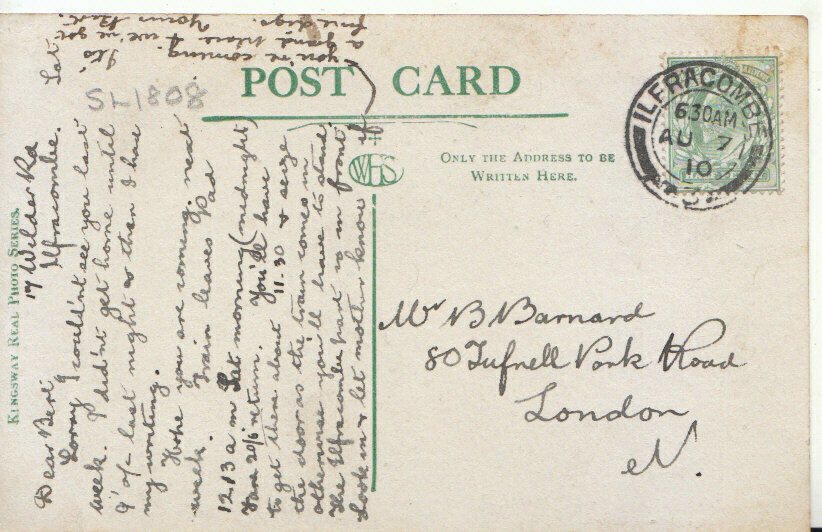 POST CARD
SL1808
ONLY THE ADDRESS TO BE
WRITTEN HERE.
WHS
KINGSWAY REAL PHOTO SERIES.
ILFRACOMBE
6.30AM
AU 7
10
Mr B Barnard
80 Tufnell Park Road
London
N.
17 Wilder Rd
Ilfracombe. Sat
Dear Bert
Sorry I couldn't see you last
week. I didn't get home until
9 o/c last night so than I had
my writing.
Hope you are coming next
week. Train leaves Pad
12.13 a m Sat morning (midnight)
Fare 20/6 return. You'll have
to get there about 11.30 & seize
the door as the train comes in
otherwise you'll have to stand.
The Ilfracombe part is in front
Look in & let mother know if
you're coming. It's
a grand place & we've got
fine digs. Yours